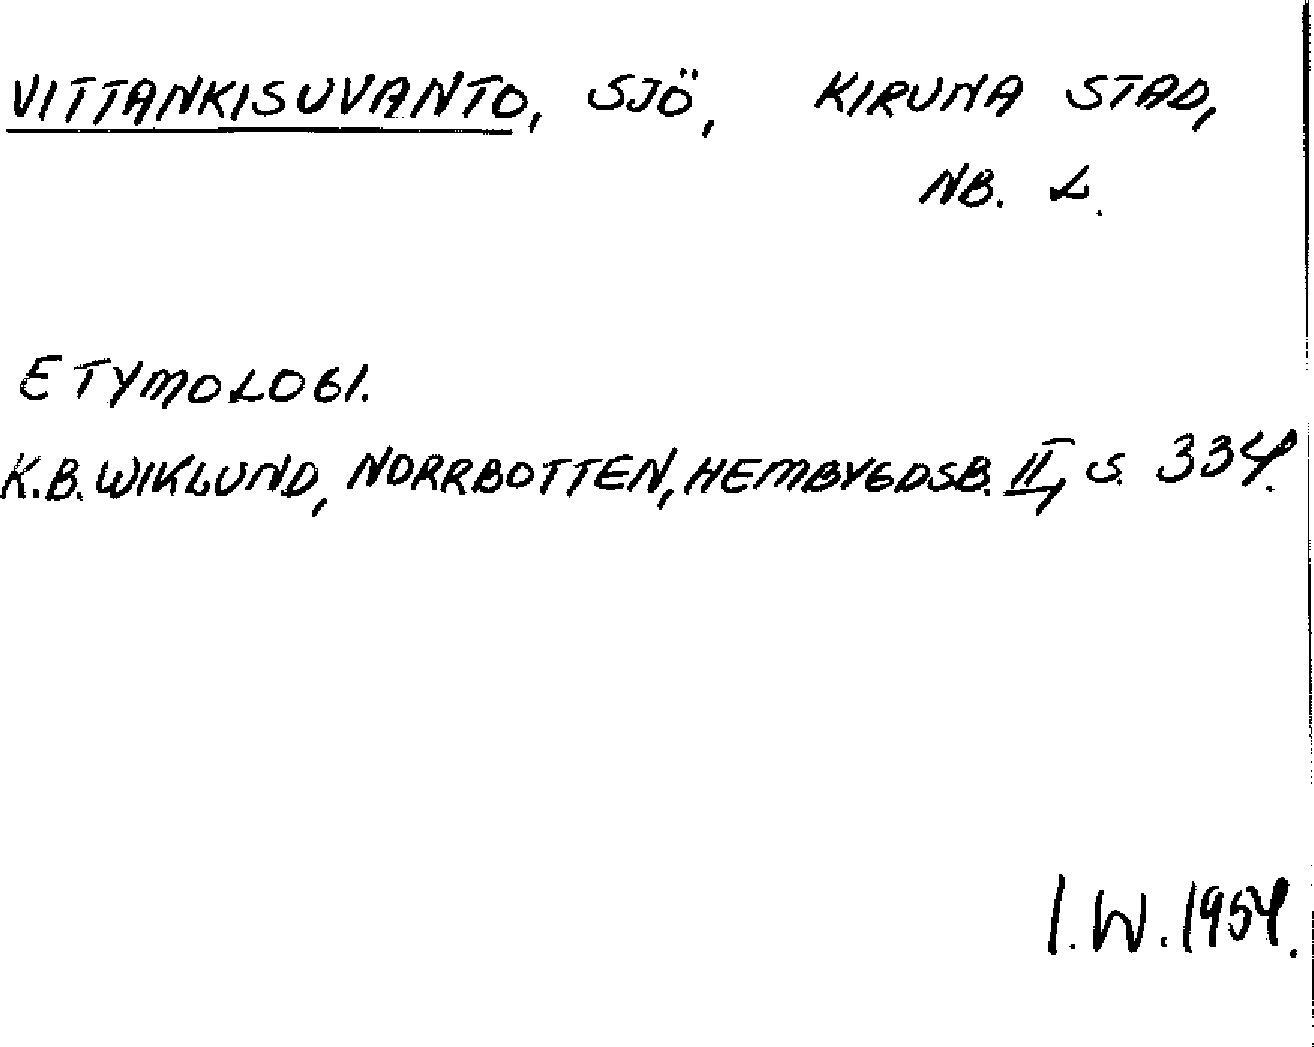 VITTANKISUVANTO, SJÖ, KIRUNA STAD,
NB. L.
ETYMOLOGI.
K.B. WIKLUND, NORRBOTTEN, HEMBYGDSB. II, S. 334.
I.W. 1954.